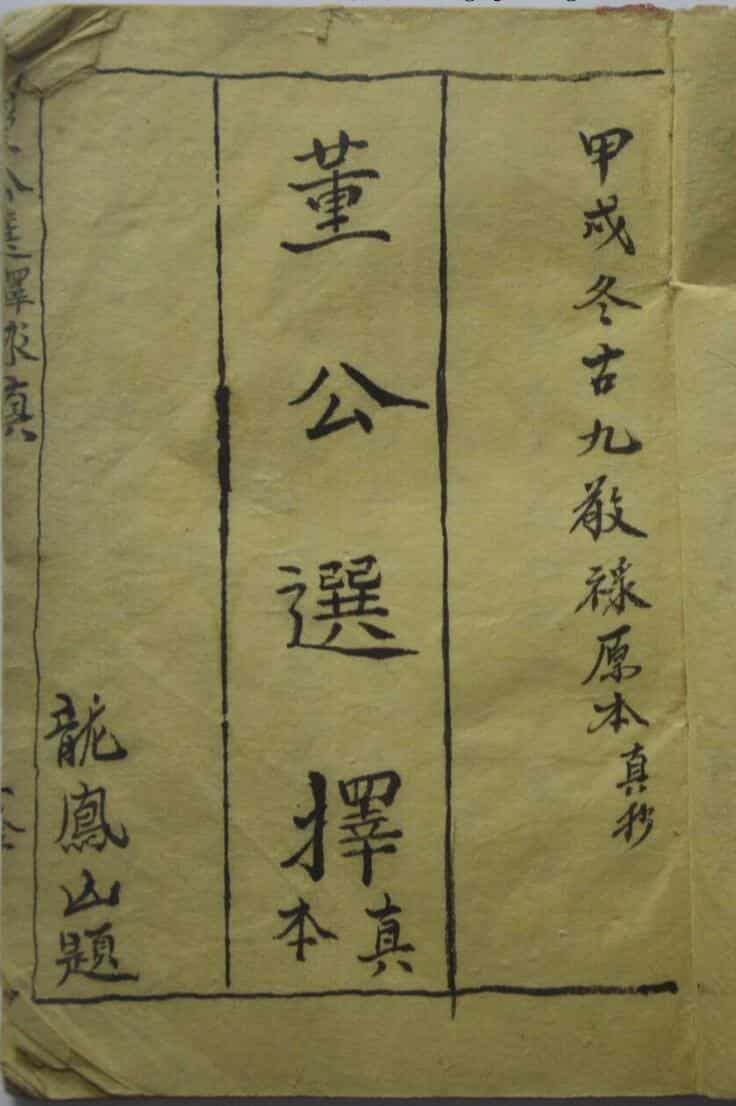 甲戌冬古九敬祿原本真抄
董公選擇真本
龍鳳山題
擇求真